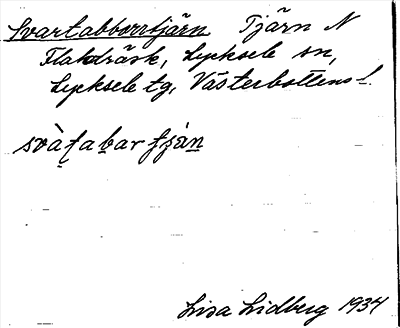 Svartabborrtjärn Tjärn N
Flakträsk, Lycksele sn,
Lycksele tg, Västerbottens l.
svàṭabar tjá̀n
Lisa Lidberg 1934